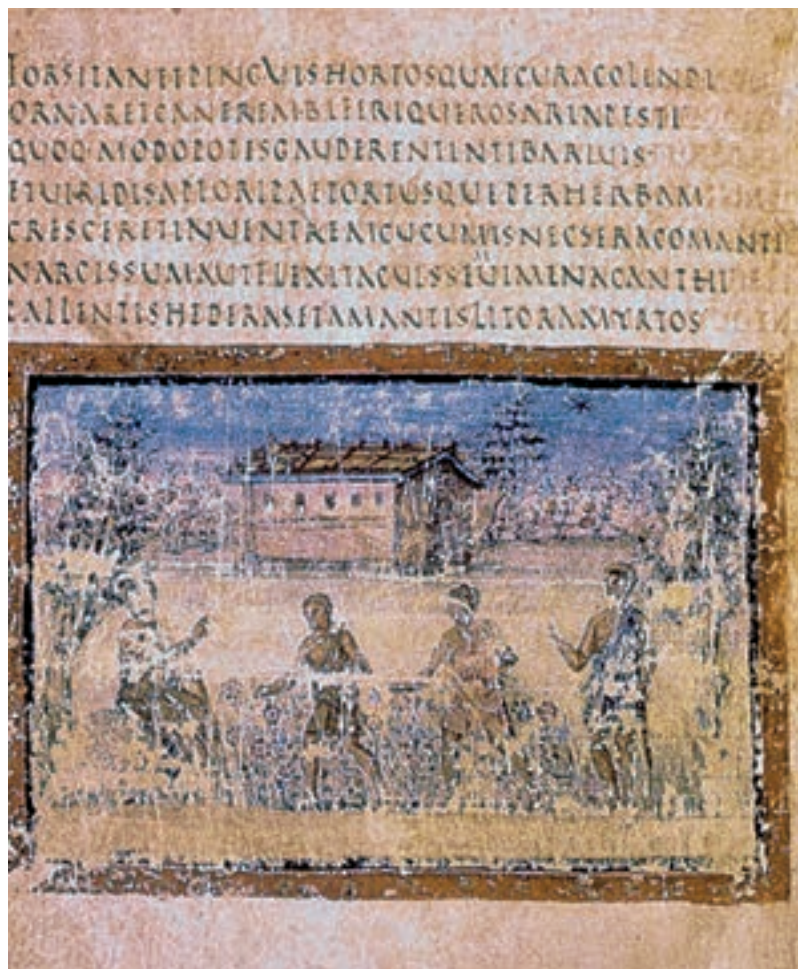 FORSITANETPINGUISHORTOSQUAECURACOLENDI
ORNARETCANEREMBIFERIQUEROSARIAPESTI
QUOQ·MODOPOTISGAUDERENTINTIBARIUIS
ETUIRIDISAPIORIPAETORTUSQUEPERHERBAM
CRESCERETINUENTREMCUCUMISNECSERACOMANTE
NARCISSUMAUTFLEXITACUISSEMUIMENACANTHI
PALLENTISHEDERASETAMANTISLITORAMYRTOS